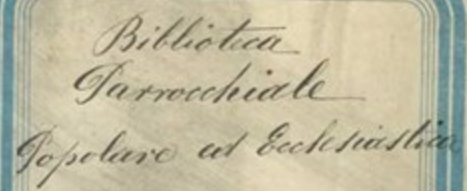 Biblioteca
Parrocchiale
Popolare ed Ecclesiastica